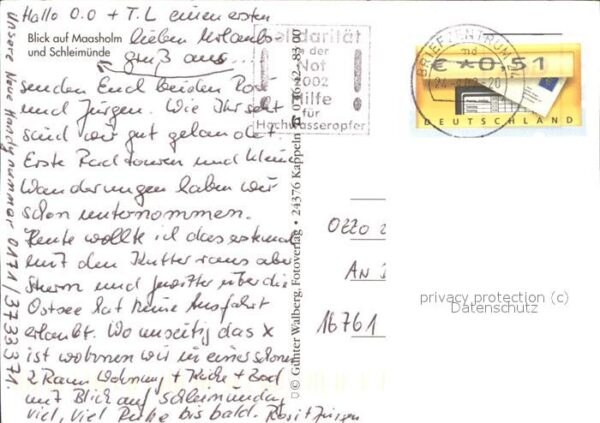 Hallo O.O + T.L einen ersten
lieben Urlaubs
gruß aus...
Blick auf Maasholm
und Schleimünde
senden Euch beiden Rosi
und Jürgen. Wie Ihr seht
sind wir gut gelandet
Erste Radtouren und kleine
Wanderungen haben wir
schon unternommen.
Heute wollte ich das erste mal
mit den Kutter raus aber
Sturm und Gewitter über die
Ostsee hat keine Ausfahrt
erlaubt. Wo unseitig das X
ist wohnen wir in einer schönen
2 Raum Wohnung + Küche + Bad
mit Blick auf Schleimünde,
viel, viel Ruhe bis bald. Rosi + Jürgen
Unsere Neue Handynummer 0171/3733371.
Solidarität
in der
Not
2002
Hilfe
für
Hochwasseropfer
© Günter Walberg, Fotoverlag • 24376 Kappeln
BRIEFZENTRUM
md
€ *0,51
DEUTSCHLAND
OZZO
AN
16761
privacy protection (c)
Datenschutz